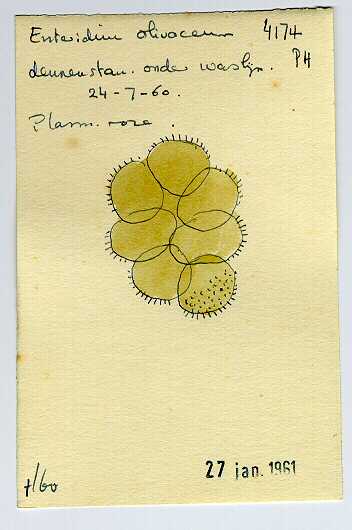 Enteridium olivaceum 4174
dennenstam. onder waslijn. PH
24-7-60.
Plasm. roze.
7/60
27 jan. 1961